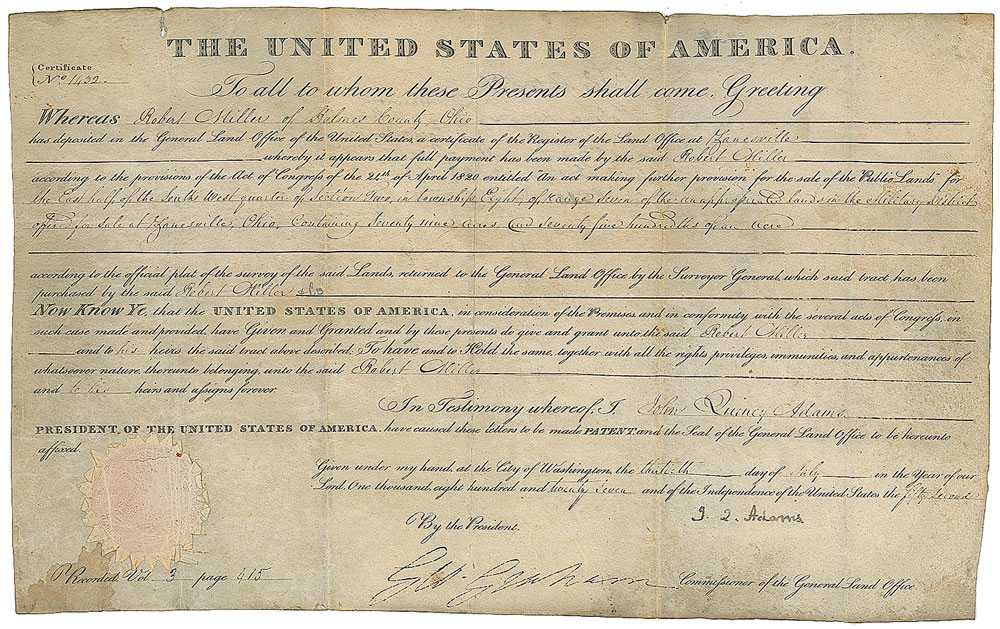 THE UNITED STATES OF AMERICA.
Certificate
No. 1422.
To all to whom these Presents shall come, Greeting
Whereas Robert Miller of Holmes County Ohio
has deposited in the General Land Office of the United States, a certificate of the Register of the Land Office at Zanesville
whereby it appears that full payment has been made by the said Robert Miller
according to the provisions of the Act of Congress of the 24th of April 1820 entitled "An act making further provision for the sale of the Public Lands" for
the East half of the South West quarter of Section Two, in township Eight, of range Seven of the unappropriated lands in the Military District
offered for sale at Zanesville, Ohio, Containing Seventy nine acres and seventy five hundredths of an acre
according to the official plat of the survey of the said Lands, returned to the General Land Office by the Surveyor General, which said tract has been
purchased by the said Robert Miller
Now Know Ye, that the UNITED STATES OF AMERICA, in consideration of the Premises, and in conformity with the several acts of Congress, in
such case made and provided, have Given and Granted and by these presents do give and grant unto the said Robert Miller
and to his heirs the said tract above described: To have and to Hold the same, together with all the rights, privileges, immunities, and appurtenances of
whatsoever nature, thereunto belonging, unto the said Robert Miller
and to his heirs and assigns forever.
In Testimony whereof, I, John Quincy Adams
PRESIDENT OF THE UNITED STATES OF AMERICA, have caused these letters to be made PATENT, and the Seal of the General Land Office to be hereunto
affixed.
Given under my hand, at the City of Washington, the thirtieth day of July in the Year of our
Lord, One thousand, eight hundred and twenty Seven and of the Independence of the United States the fifty Second
J. Q. Adams
By the President.
Geo: Graham Commissioner of the General Land Office
Recorded, Vol. 3 page 415